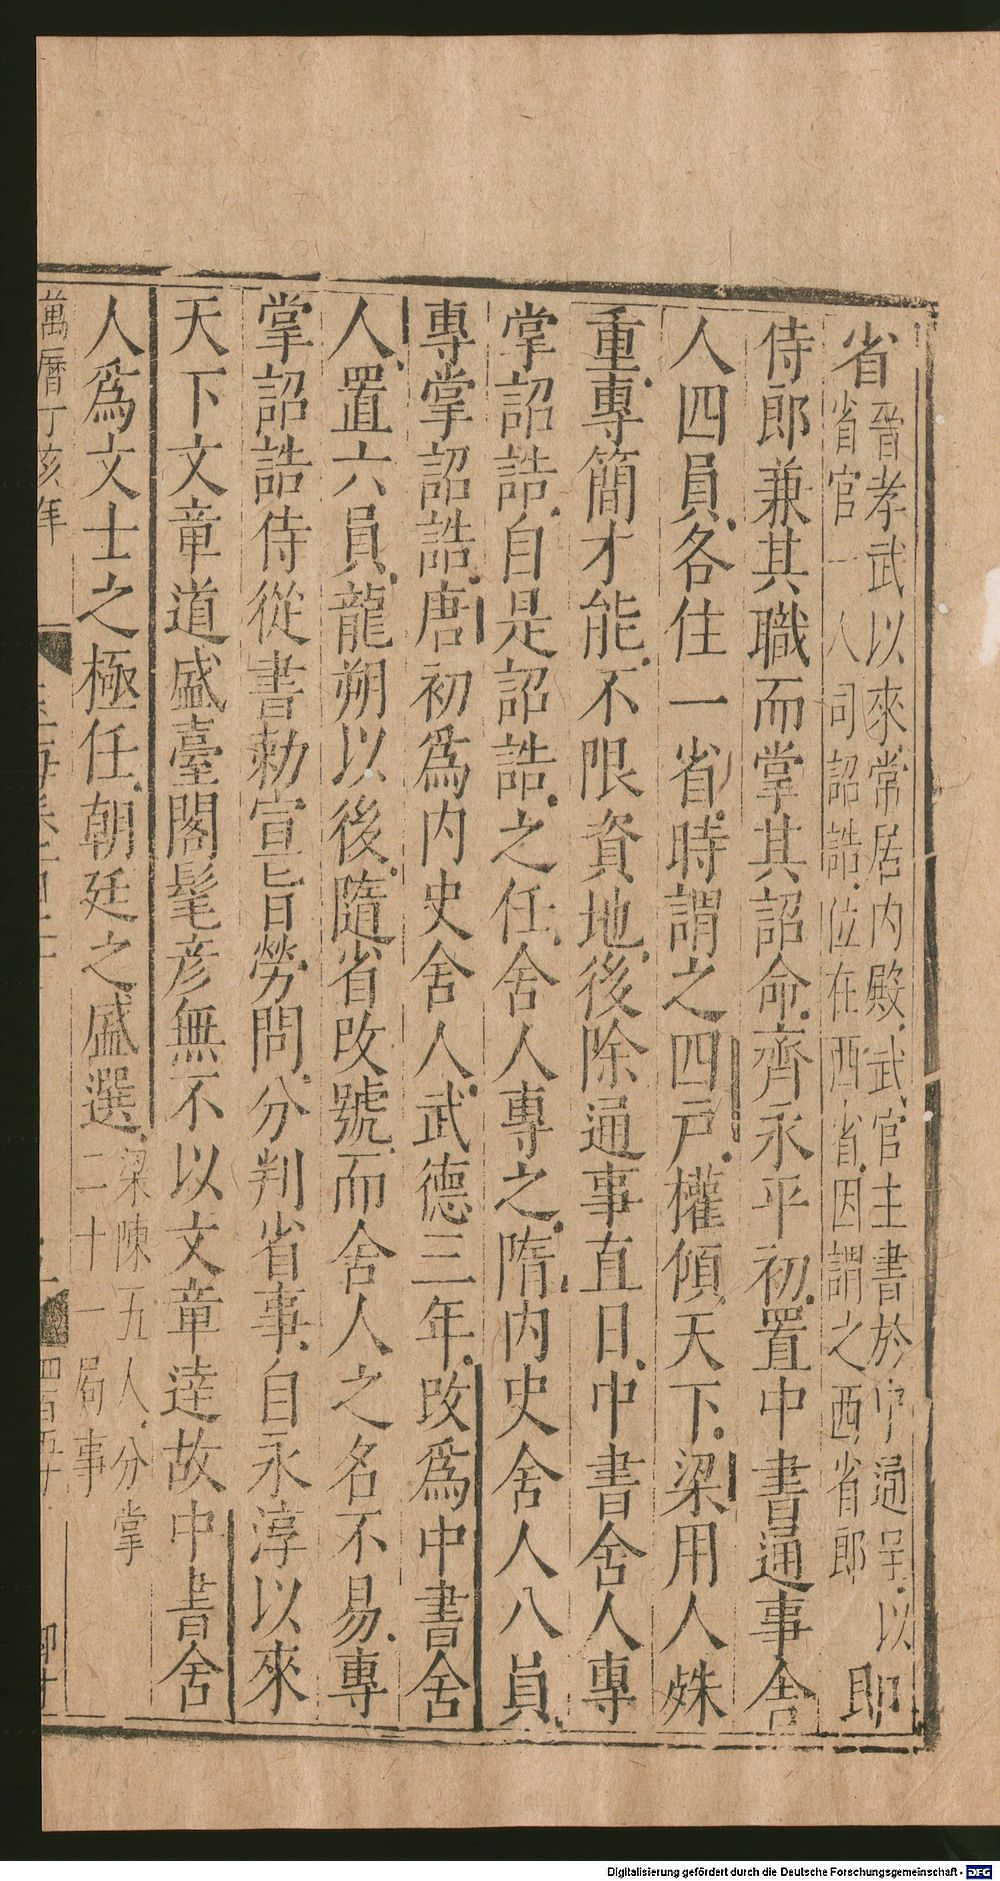 省晉孝武以來常居内殿武官主書於中通呈以
省官一人司詔誥位在西省因謂之西省郎 即
侍郎兼其職而掌其詔命齊永平初置中書通事舍
人四員各住一省時謂之四戸權傾天下梁用人殊
重專簡才能不限資地後除通事直日中書舍人專
掌詔誥自是詔誥之任舍人專之隋内史舍人八員
專掌詔誥唐初爲内史舍人武德三年改爲中書舍
人置六員龍朔以後隨省改號而舍人之名不易專
掌詔誥侍從書勅宣旨勞問分判省事自永淳以來
天下文章道盛臺閣髦彦無不以文章逹故中書舍
人爲文士之極任朝廷之盛選梁陳五人分掌
二十一局事
萬曆丁亥年
Digitalisierung gefördert durch die Deutsche Forschungsgemeinschaft - DFG